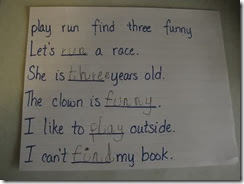 play run find three funny
Let's run a race.
She is three years old.
The clown is funny.
I like to play outside.
I can't find my book.